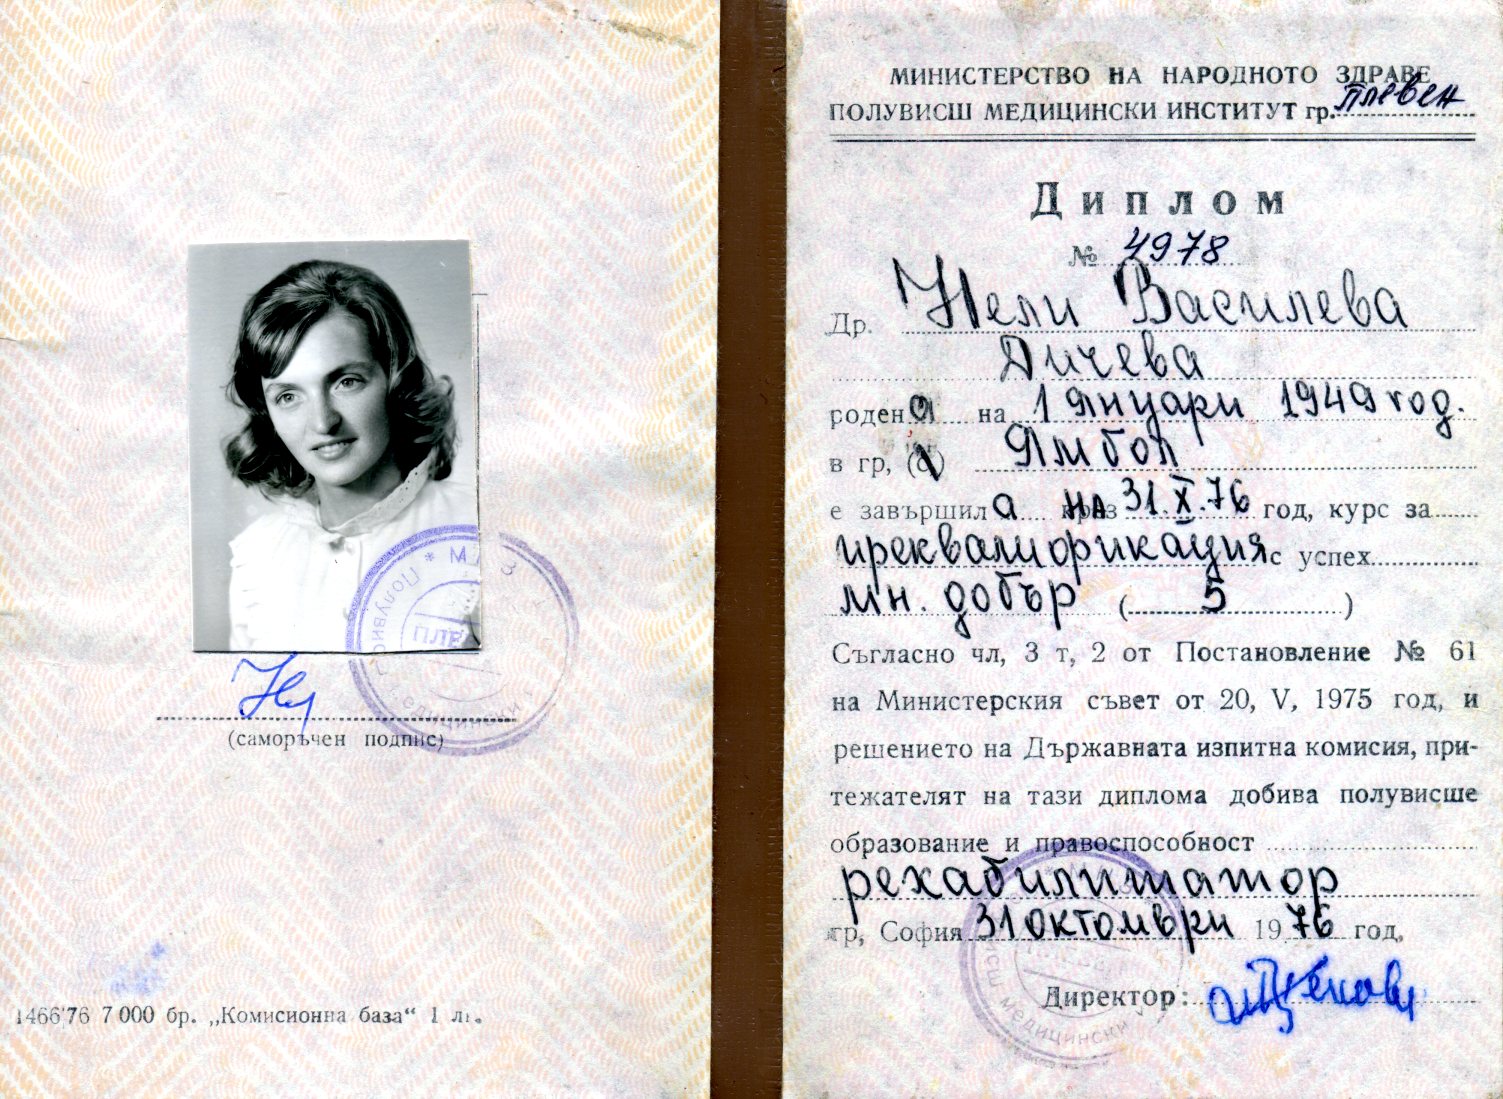 (саморъчен подпис)
1466'76 7 000 бр. „Комисионна база“ 1 л.
МИНИСТЕРСТВО НА НАРОДНОТО ЗДРАВЕ
ПОЛУВИСШ МЕДИЦИНСКИ ИНСТИТУТ гр. Плевен
Диплом
№ 4978
Др. Нели Василева
Дичева
родена на 1 Януари 1949 год.
в гр, (с) Ямбол
е завършила на 31.X.76 год, курс за
преквалификация с успех
мн. добър (5)
Съгласно чл, 3 т, 2 от Постановление № 61
на Министерския съвет от 20, V, 1975 год, и
решението на Държавната изпитна комисия, при-
тежателят на тази диплома добива полувисше
образование и правоспособност
рехабилитатор
гр, София 31 октомври 1976 год,
Директор: